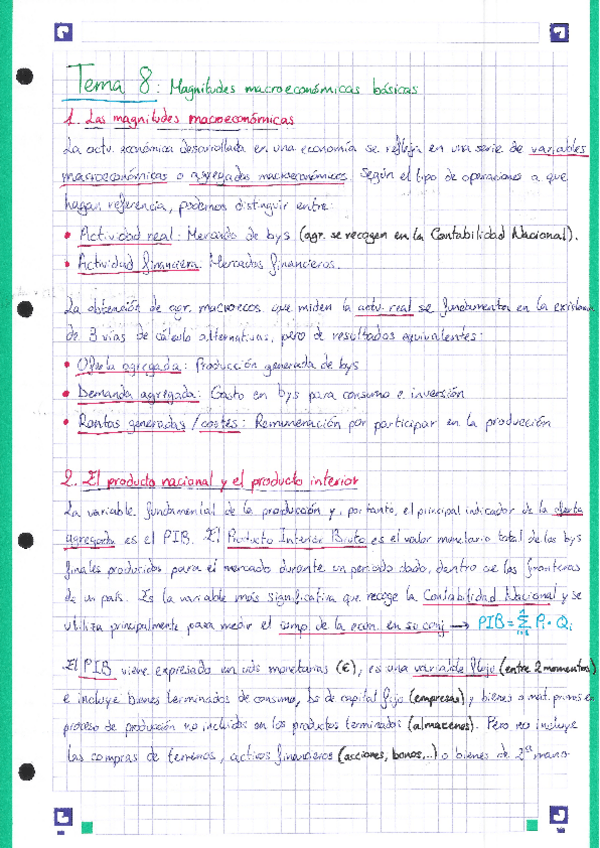 Tema 8: Magnitudes macroeconómicas básicas
1. Las magnitudes macroeconómicas
La actv. económica desarrollada en una economía se refleja en una serie de variables
macroeconómicas o agregados macroeconómicos. Según el tipo de operaciones a que
hagan referencia, podemos distinguir entre:
• Actividad real: Mercado de bys (agr. se recogen en la Contabilidad Nacional).
• Actividad financiera: Mercados financieros.
La obtención de agr. macroecos. que miden la actv. real se fundamenta en la existencia
de 3 vías de cálculo alternativas, pero de resultados equivalentes:
• Oferta agregada: Producción generada de bys
• Demanda agregada: Gasto en bys para consumo e inversión
• Rentas generadas / costes: Remuneración por participar en la producción
2. El producto nacional y el producto interior
La variable fundamental de la producción y, por tanto, el principal indicador de la oferta
agregada es el PIB. El Producto Interior Bruto es el valor monetario total de los bys
finales producidos para el mercado durante un periodo dado, dentro de las fronteras
de un país. Es la variable más significativa que recoge la Contabilidad Nacional y se
utiliza principalmente para medir el comp. de la econ. en su conj → PIB = Σ Pi · Qi
El PIB viene expresado en uds monetarias (€), es una variable flujo (entre 2 momentos)
e incluye bienes terminados de consumo, bs de capital fijo (empresas) y bienes o mat. primas en
proceso de producción no incluidos en los productos terminados (almacenes). Pero no incluye
las compras de terrenos, activos financieros (acciones, bonos,..) o bienes de 2ª mano